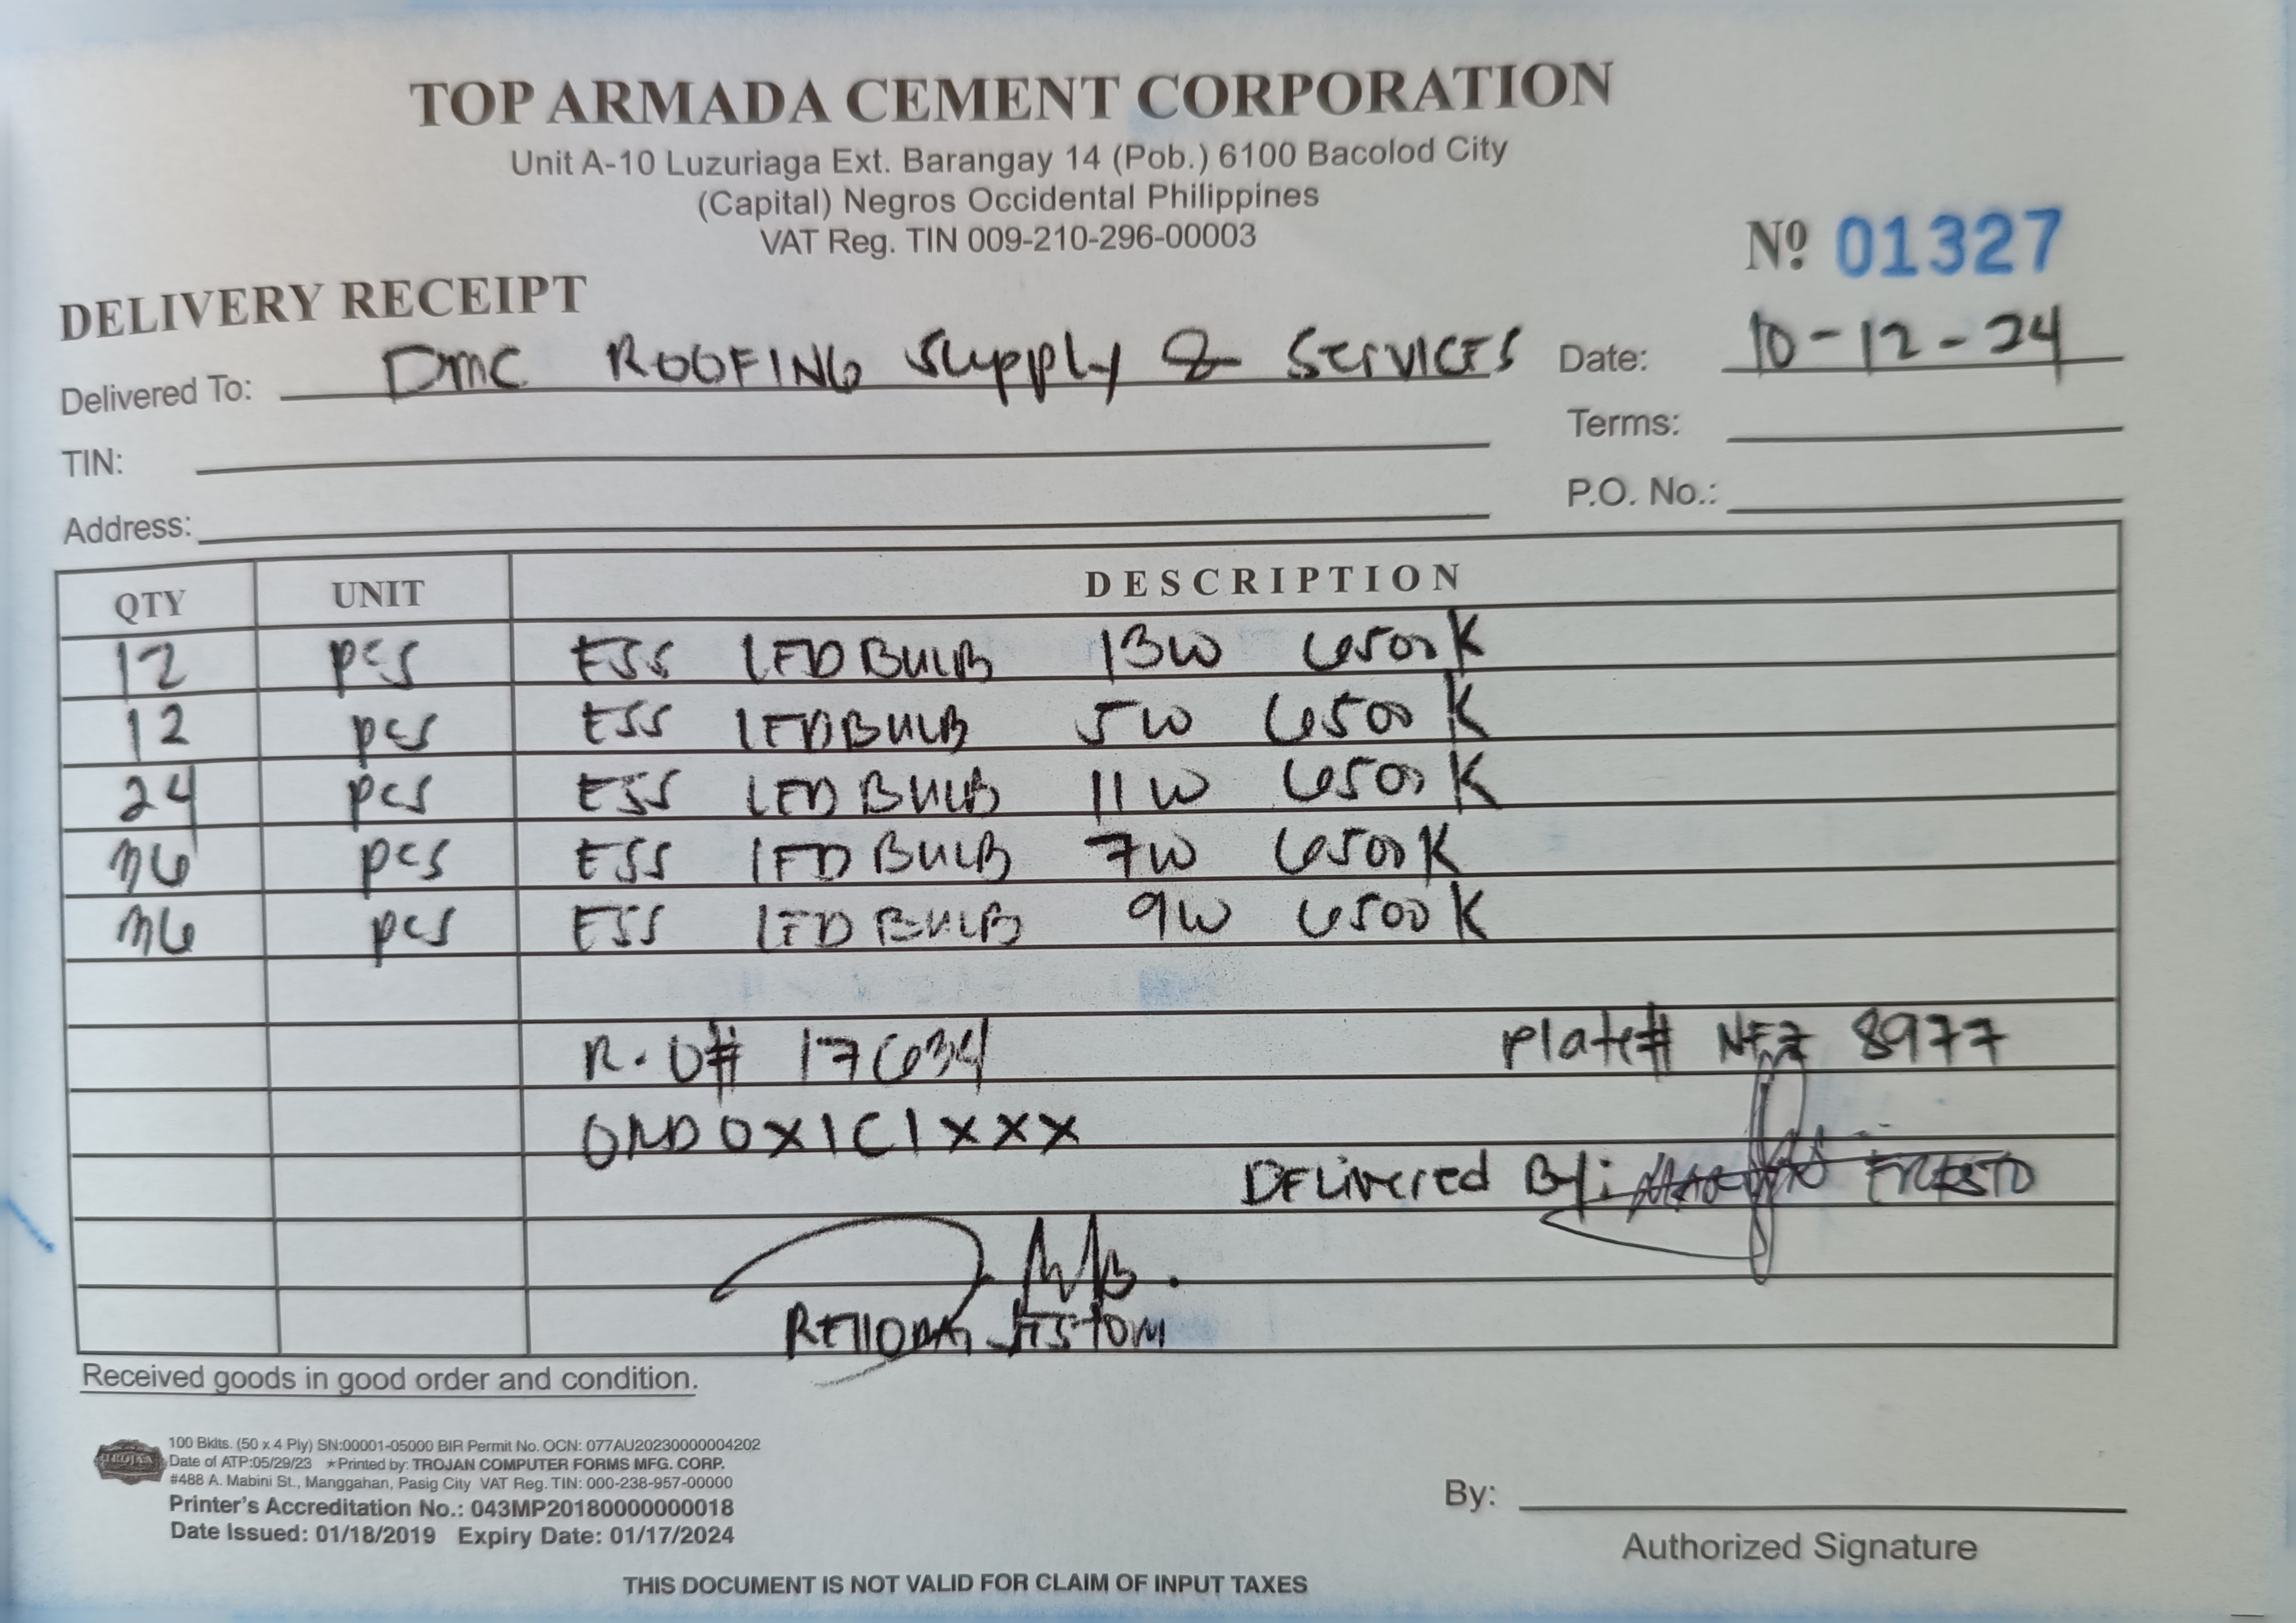 TOP ARMADA CEMENT CORPORATION
Unit A-10 Luzuriaga Ext. Barangay 14 (Pob.) 6100 Bacolod City
(Capital) Negros Occidental Philippines
VAT Reg. TIN 009-210-296-00003
Nº 01327
DELIVERY RECEIPT
Delivered To: DMC ROOFING Supply & SERVICES Date: 10-12-24
TIN: Terms:
Address: P.O. No.:
QTY UNIT DESCRIPTION
12 pcs ESS LED BULB 13W 6500K
12 pcs ESS LED BULB 5W 6500K
24 pcs ESS LED BULB 11W 6500K
36 pcs ESS LED BULB 7W 6500K
36 pcs ESS LED BULB 9W 6500K
R.O# 17634 Plate# 8977
0X1C1XXX
DELivered By:
Received goods in good order and condition.
100 Bklts. (50 x 4 Ply) SN:00001-05000 BIR Permit No. OCN: 077AU20230000004202
Date of ATP:05/29/23 ★Printed by: TROJAN COMPUTER FORMS MFG. CORP.
#488 A. Mabini St., Manggahan, Pasig City VAT Reg. TIN: 000-238-957-00000
Printer's Accreditation No.: 043MP20180000000018
Date Issued: 01/18/2019 Expiry Date: 01/17/2024
By:
Authorized Signature
THIS DOCUMENT IS NOT VALID FOR CLAIM OF INPUT TAXES